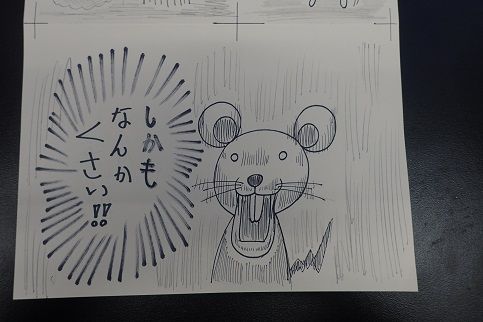 しかも
なんか
くさい!!